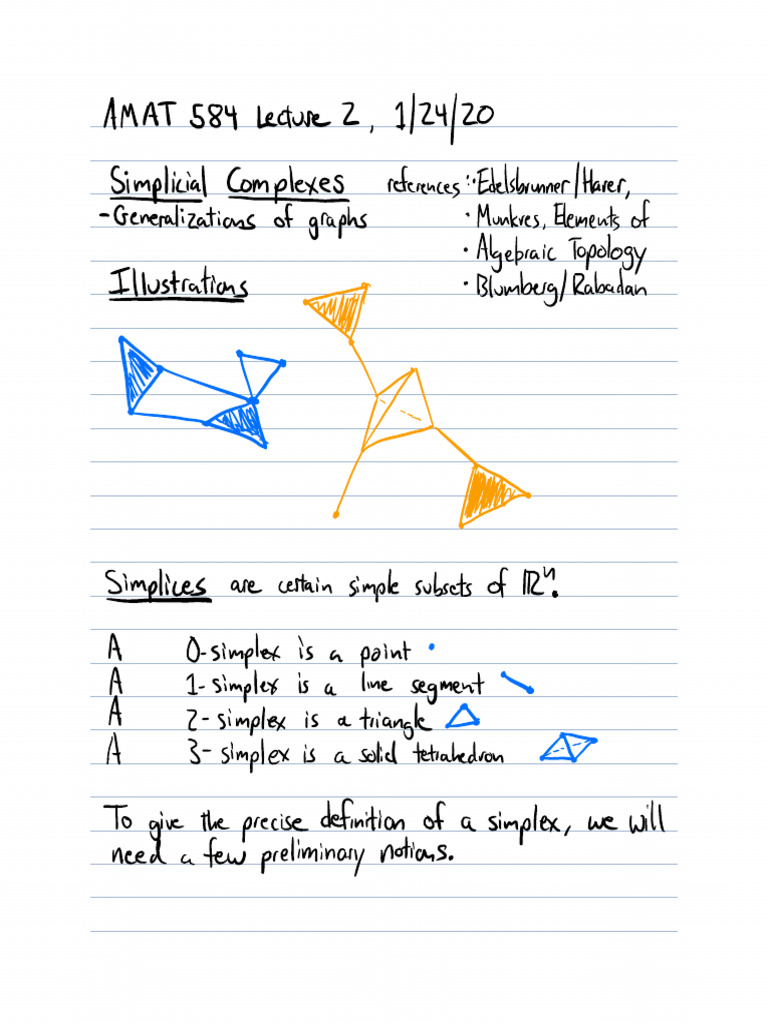 AMAT 584 Lecture 2, 1/24/20
Simplicial Complexes references: · Edelsbrunner/Harer,
- Generalizations of graphs · Munkres, Elements of
· Algebraic Topology
Illustrations · Blumberg/Rabadan
Simplices are certain simple subsets of ℝⁿ.
A 0-simplex is a point
A 1-simplex is a line segment
A 2-simplex is a triangle
A 3-simplex is a solid tetrahedron
To give the precise definition of a simplex, we will
need a few preliminary notions.